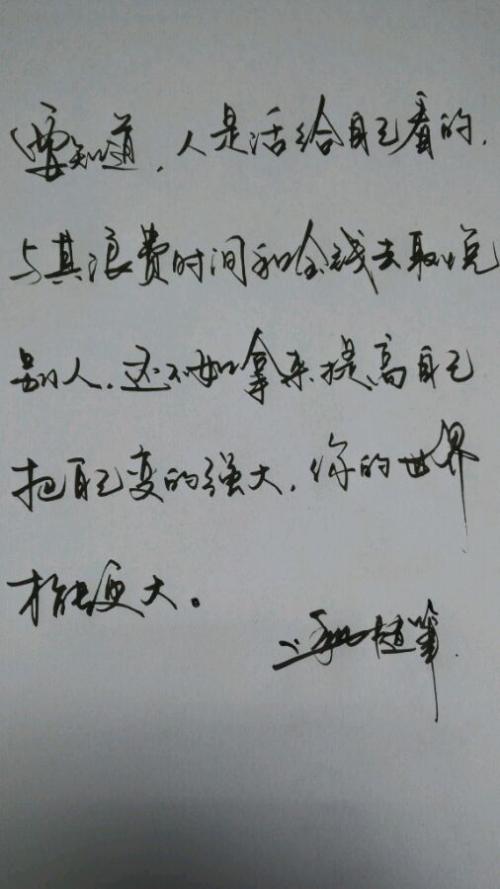 要知道，人是活给自己看的，
与其浪费时间和金钱去取悦
别人，还不如拿来提高自己
把自己变的强大，你的世界
才能更大。
随笔